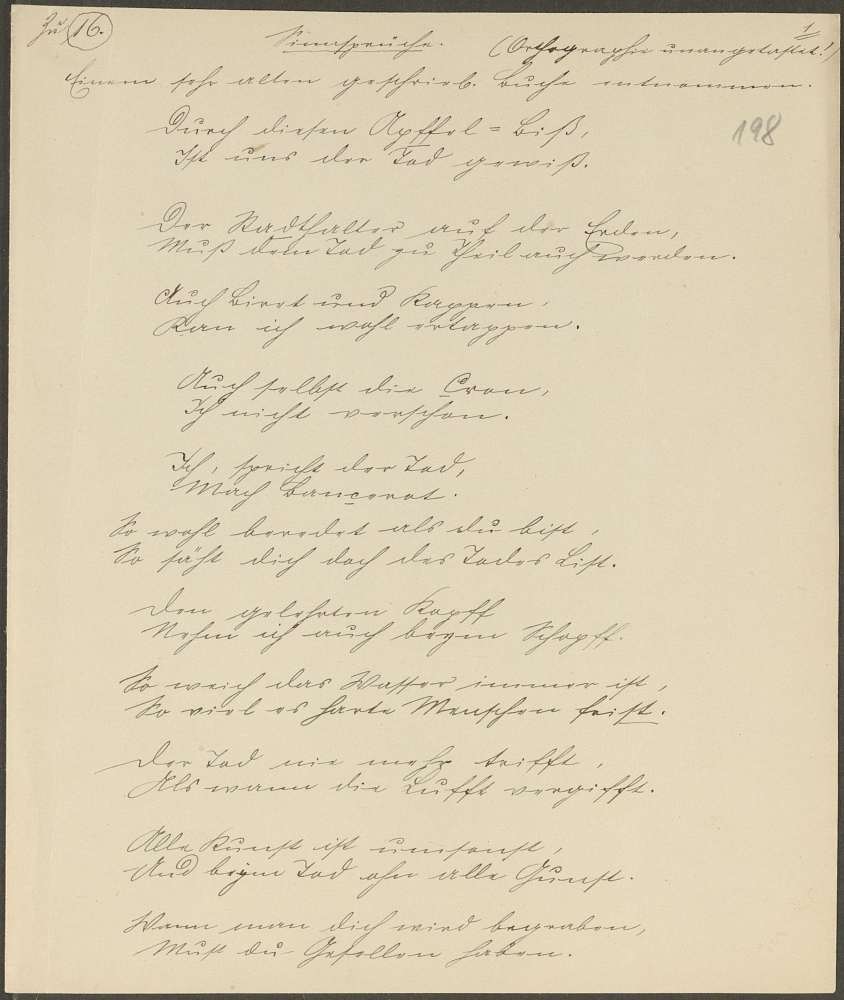 Zu 16.
Sinnsprüche. (Orthographie unangetastet!) 1
Einem sehr alten geschrieb. Buche entnommen.
198
Durch diesen Apffel-Biß,
Ist uns der Tod gewiß.
Der Stadthalter auf der Erden,
Muß dem Tod zu Theil auch werden.
Auch Biret und Kappen,
Kan ich wohl ertappen.
Auch selbst die Cron,
Ich nicht verschon.
Ich, spricht der Tod,
Mach Bancerot.
So wohl beredet als du bist,
So fäht dich doch des Todes List.
Den gelehrten Kopff
Nehm ich auch beym Schopff.
So weich das Wasser immer ist,
So viel es harte Menschen frist.
Der Tod nie mehr trifft,
Als wann die Lufft vergifft.
Alle Kunst ist umsonst,
Und beym Tod ohn alle Gunst.
Wann man dich wird begraben,
Must du Gesellen haben.